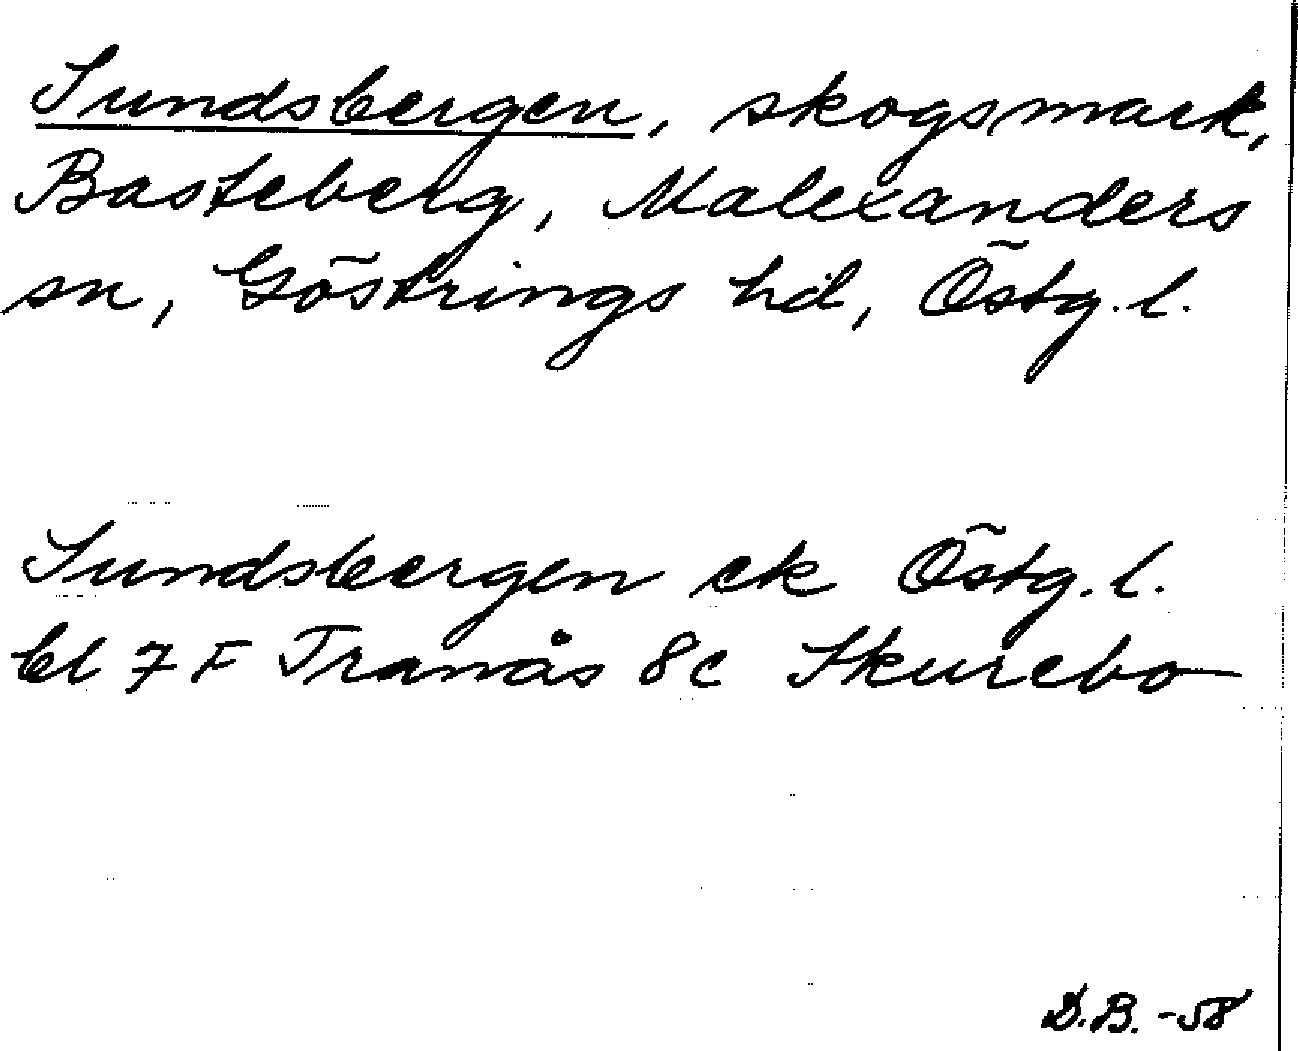 Sundsbergen, skogsmark,
Basteberg, Malexanders
sn, Göstrings hd, Östg. l.
Sundsbergen ek Östg. l.
bl 7 F Tranås 8c Skurebo
D.B. -58